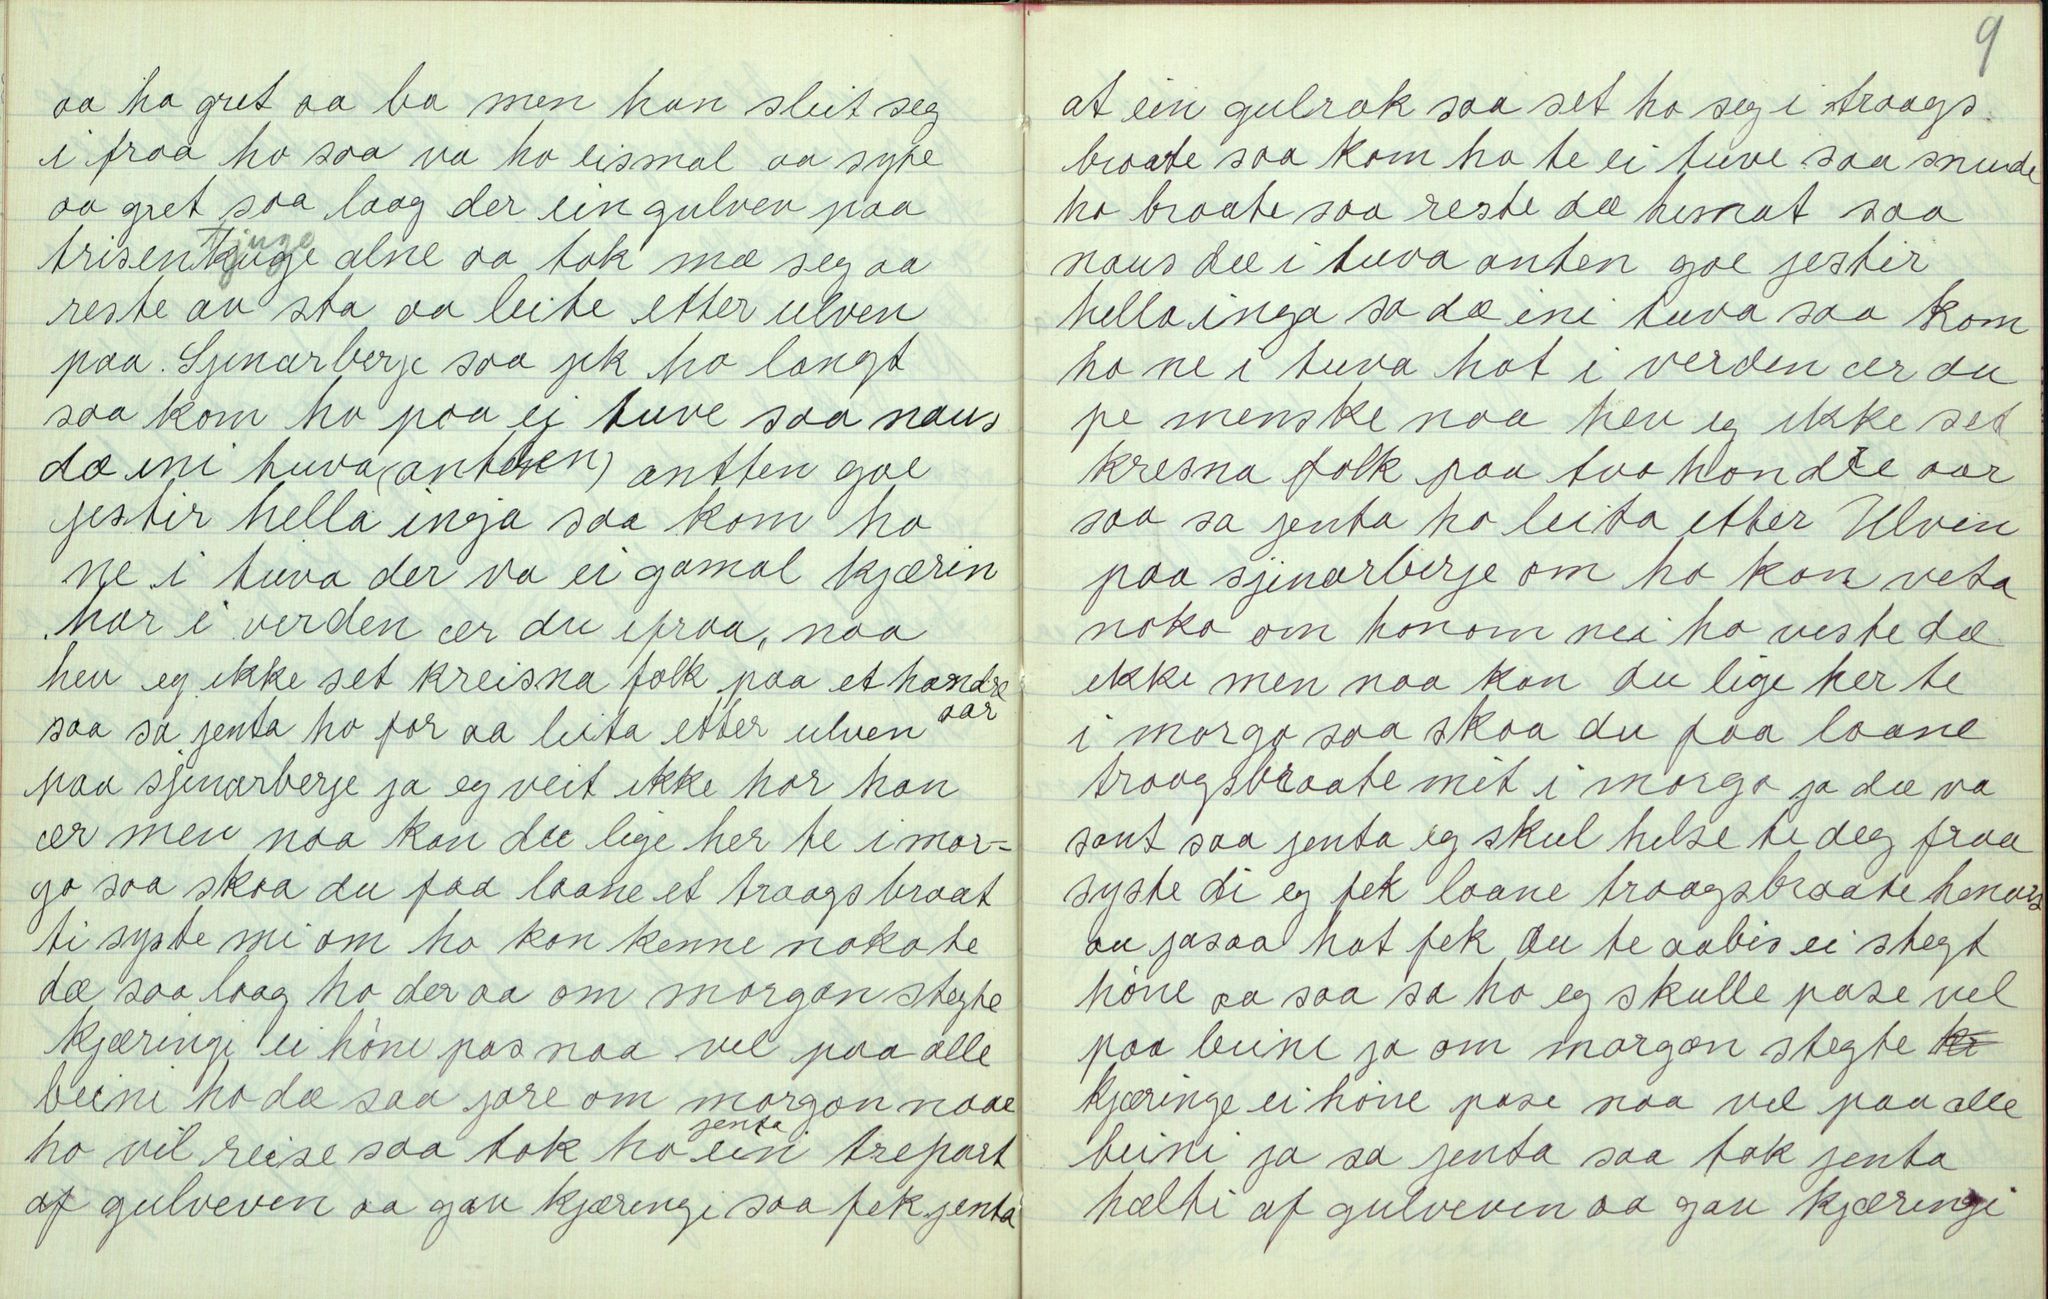 oa ho gret oa ba men han sleit seg
i fraa ho soa va ho eismal oa sype
oa gret soa laag der ein gulven paa
trisentjuge alne oa tok mæ seg oa
reste av sta oa leite etter ulven
paa. Sjinarberje soa jek ho langt
soa kom ho paa ei tuve soa naus
dæ ini tuva (anten) antten goe
jestir hella inga soa kom ho
ne i tuva der va ei gamal kjærin
hor i verden ær du ifraa, naa
hev eg ikke set kreisna folk paa et hondre
aar
soa sa jenta ho for oa leita etter ulven
paa sjinarberje ja eg veit ikke hor han
ær men naa kan du lige her te i mor=
go soa skoa du faa loane et traagsbraat
ti syste mi om ho kan kenne noko te
dæ soa laag ho der oa om morgon stegte
kjæringi ei höne pas naa vel paa alle
beini ho dæ soa jore om morgon naae
jenta
ho vil reise soa tok ho ein trepart
af gulveven oa gav kjæringi soa fek jenta
9
at ein gulrok soa set ho seg i traags
braate soa kom ho te ei tuve soa snude
ho braate soa reste dæ hemat soa
naus dæ i tuva anten goe jestir
hella inga sa dæ ini tuva soa kom
ho ne i tuva hot i verden ær du
pe menske naa hev eg ikke set
kresna folk paa tvo hondre aar
soa sa jenta ho leita etter Ulven
paa sjinarberje om ho kan veta
noko om honom nei ho veste dæ
ikke men naa kan du lige her te
i morgo soa skoa du faa loane
traagsbraate mit i morgo ja dæ va
sant soa jenta eg skul helse te deg fraa
syste di eg fek loane traagsbraate henars
aa jasaa hot fek du te aabis ei stegt
höne oa soa sa ho eg skulle pase vel
paa beini ja om morgon stegte
kjæringe ei höne pase naa vel paa alle
beini ja sa jenta soa tok jenta
hælti af gulveven oa gav kjæringi